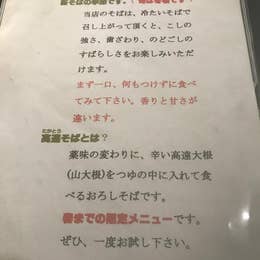 当店のそばは、冷たいそばで
召し上がって頂くと、こしの
強さ、歯ざわり、のどごしの
すばらしさをお楽しみいただ
けます。
まず一口、何もつけずに食べ
てみて下さい。香りと甘さが
違います。
たかとう
高遠そばとは？
薬味の変わりに、辛い高遠大根
(山大根)をつゆの中に入れて食
べるおろしそばです。
春までの限定メニューです。
ぜひ、一度お試し下さい。